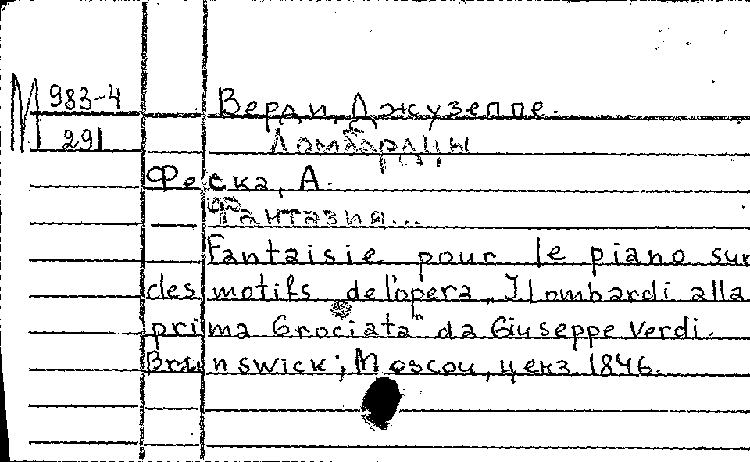 М 983-4
291
Верди, Джузеппе.
Ломбардцы
Феска, А.
Фантазия...
Fantaisie pour le piano sur
des motifs de l'opera „I Lombardi alla
prima Crociata" da Giuseppe Verdi.
Brunswick; Moscou, ценз. 1846.